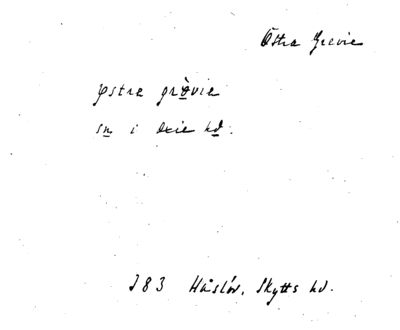 Östra Grevie
östra grevie
sn i oxie hd.
383 Håslöv. Skytts hd.